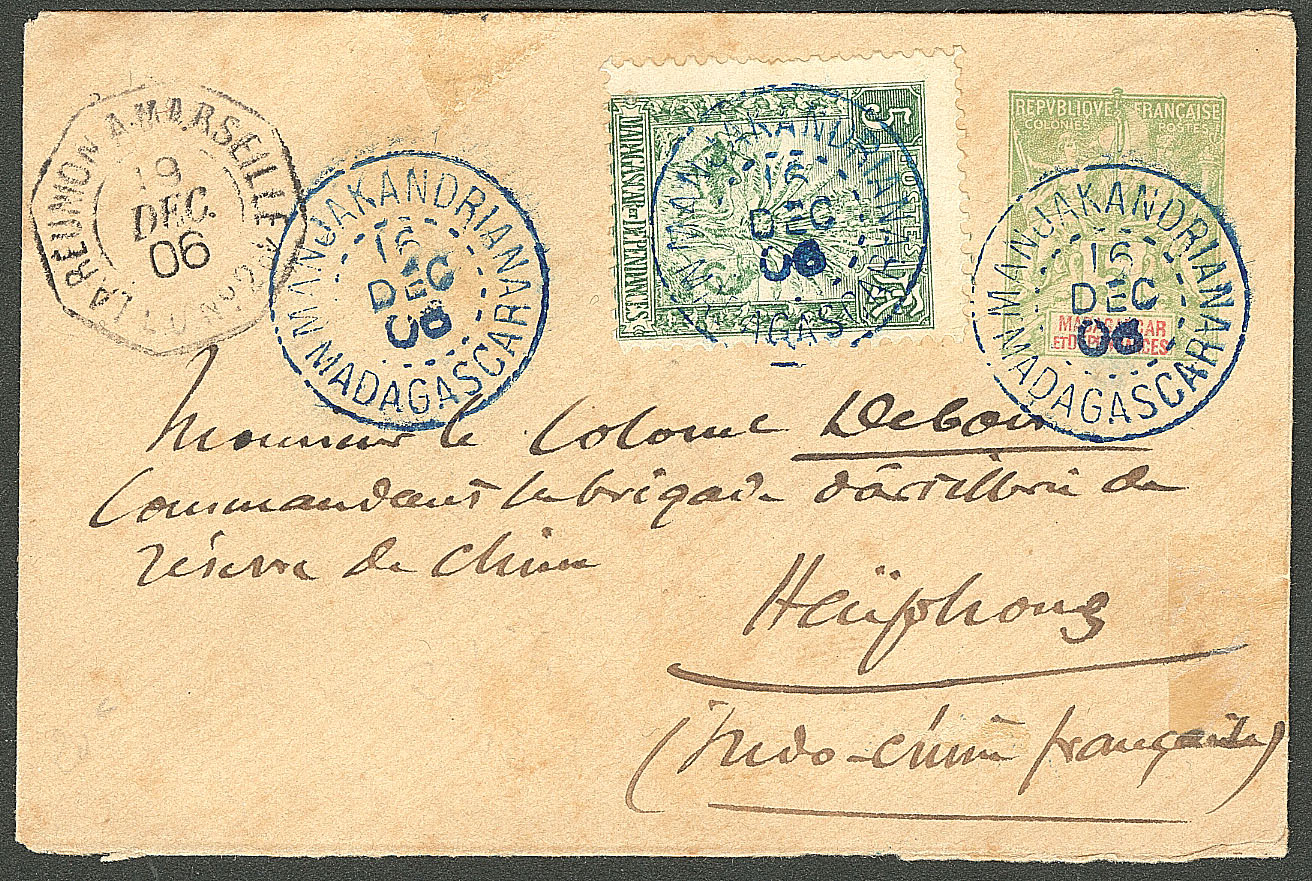 LA RÉUNION A MARSEILLE
19
DEC.
06
MANJAKANDRIANA
16
DEC
06
MADAGASCAR
5
POSTES
MADAGASCAR ET DEPENDANCES
MANJAKANDRIANA
16
DEC
06
REPVBLIQVE FRANÇAISE
COLONIES POSTES
MADAGASCAR
ET DEPENDANCES
MANJAKANDRIANA
16
DEC
06
MADAGASCAR
Monsieur le Colonel
Commandant la brigade d'artillerie de
réserve de Chine
Haïphong
(Indo-chine française)